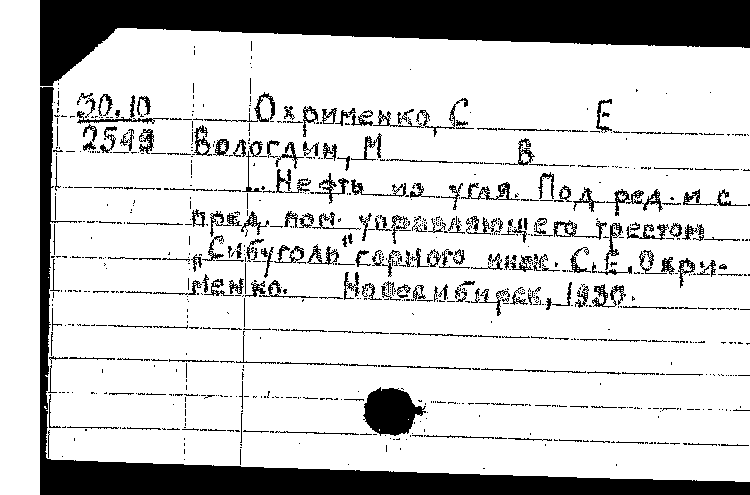 30.10 Охрименко, С Е
2549 Вологдин, М В
... Нефть из угля. Под ред. и с
пред. пом. управляющего трестом
„Сибуголь" горного инж. С.Е. Охри-
менко. Новосибирск, 1930.